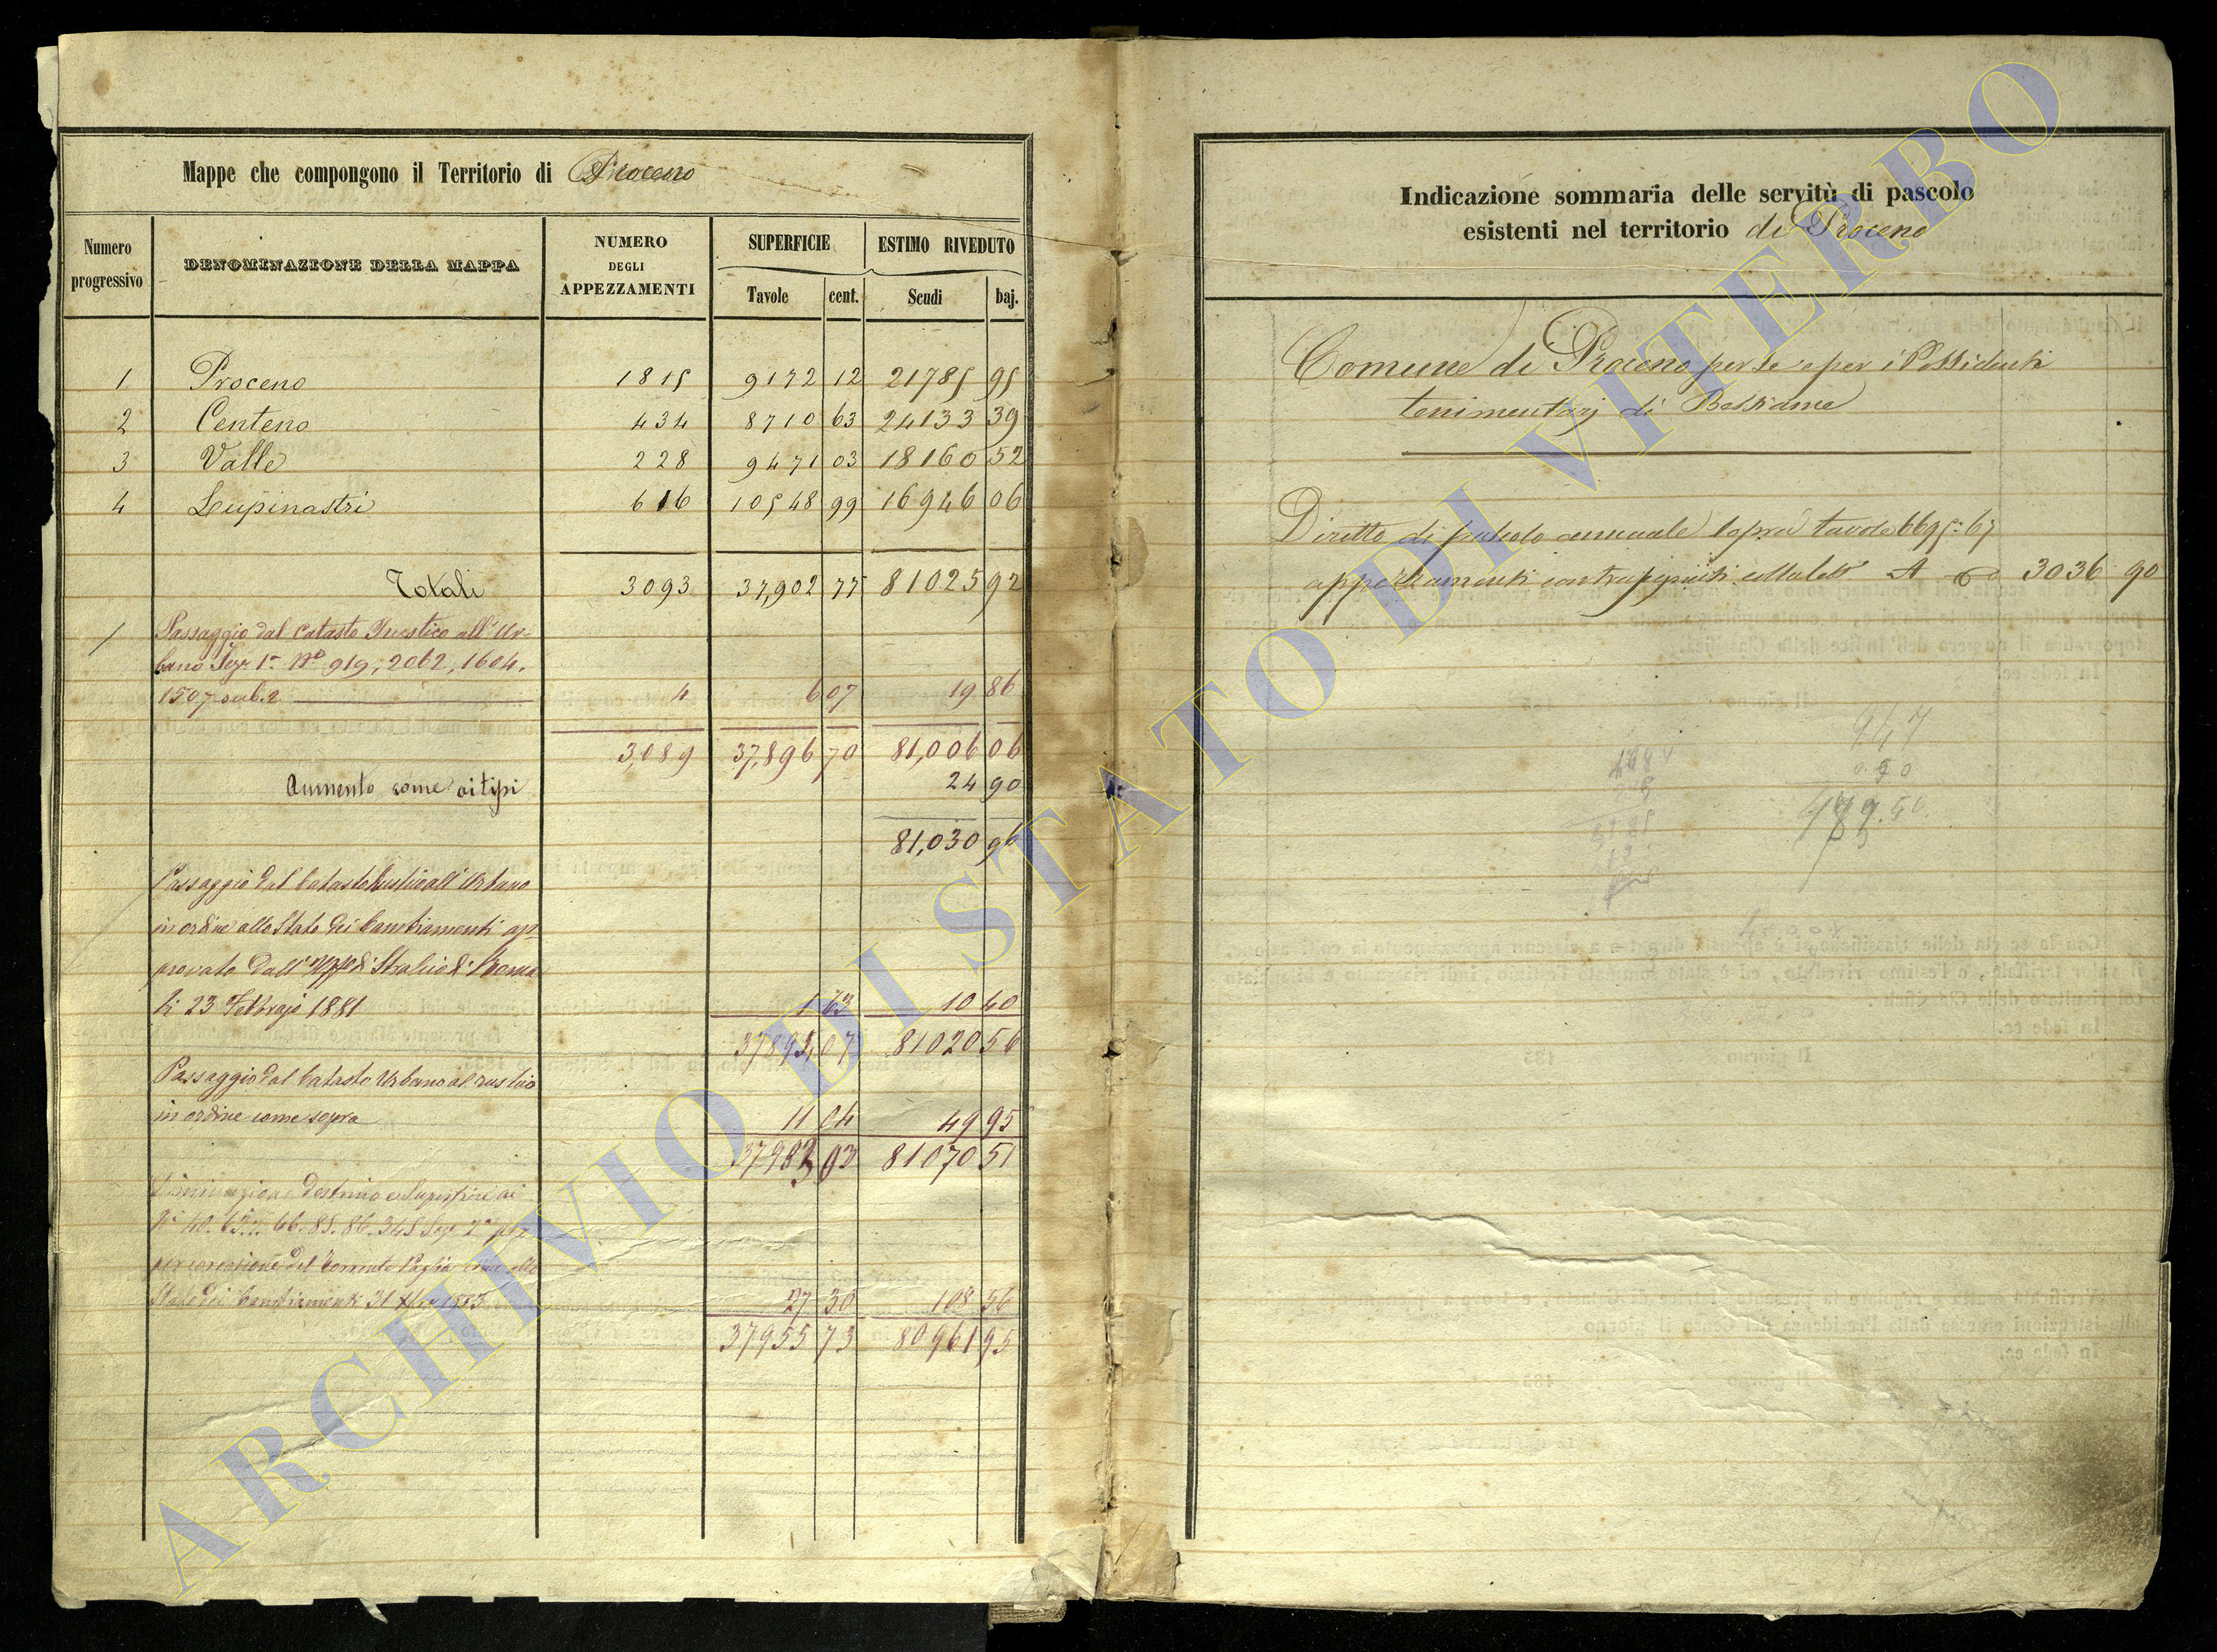 Mappe che compongono il Territorio di Proceno
Numero progressivo
DENOMINAZIONE DELLA MAPPA
NUMERO DEGLI APPEZZAMENTI
SUPERFICIE
ESTIMO RIVEDUTO
Tavole cent. Scudi baj.
1 Proceno 1815 9172 12 21785 95
2 Centeno 434 8710 63 24133 39
3 Valle 228 9471 03 18160 52
4 Lupinastri 616 10548 99 16946 06
Totali 3093 37,902 77 81025 92
Passaggio dal Catasto Rustico all' Ur-
bano Sez. 1a No 919, 2062, 1604,
1507 sub. 2 4 6 07 19 86
3,089 37,896 70 81,006 06
Aumento come 24 90
81,030 96
Passaggio dal Catasto Rustico all' Urbano
in ordine allo Stato dei Cambiamenti ap-
provato dall' di Stralcio di Roma
li 23 Febbrajo 1881 1 63 10 40
07 81020 56
Passaggio dal Catasto Urbano al rustico
in ordine come sopra 11 04 49 95
81070 51
Diminuzione d'estimo e Superficie ai
66. 85. 86. 345 Sez. 2a
per corrosione del torrente Paglia
Stato dei Cambiamenti 31 1885 27 30 108 56
37955 73 80961 95
Indicazione sommaria delle servitù di pascolo
esistenti nel territorio di Proceno
Comune di Proceno per se e per i Possidenti
tenimentarj di Bestiame
Diritto di pascolo annuale sopra tavole 6695:67
appezzamenti contrapuntati colla lett. A 3036 90
947
ARCHIVIO DI STATO DI VITERBO